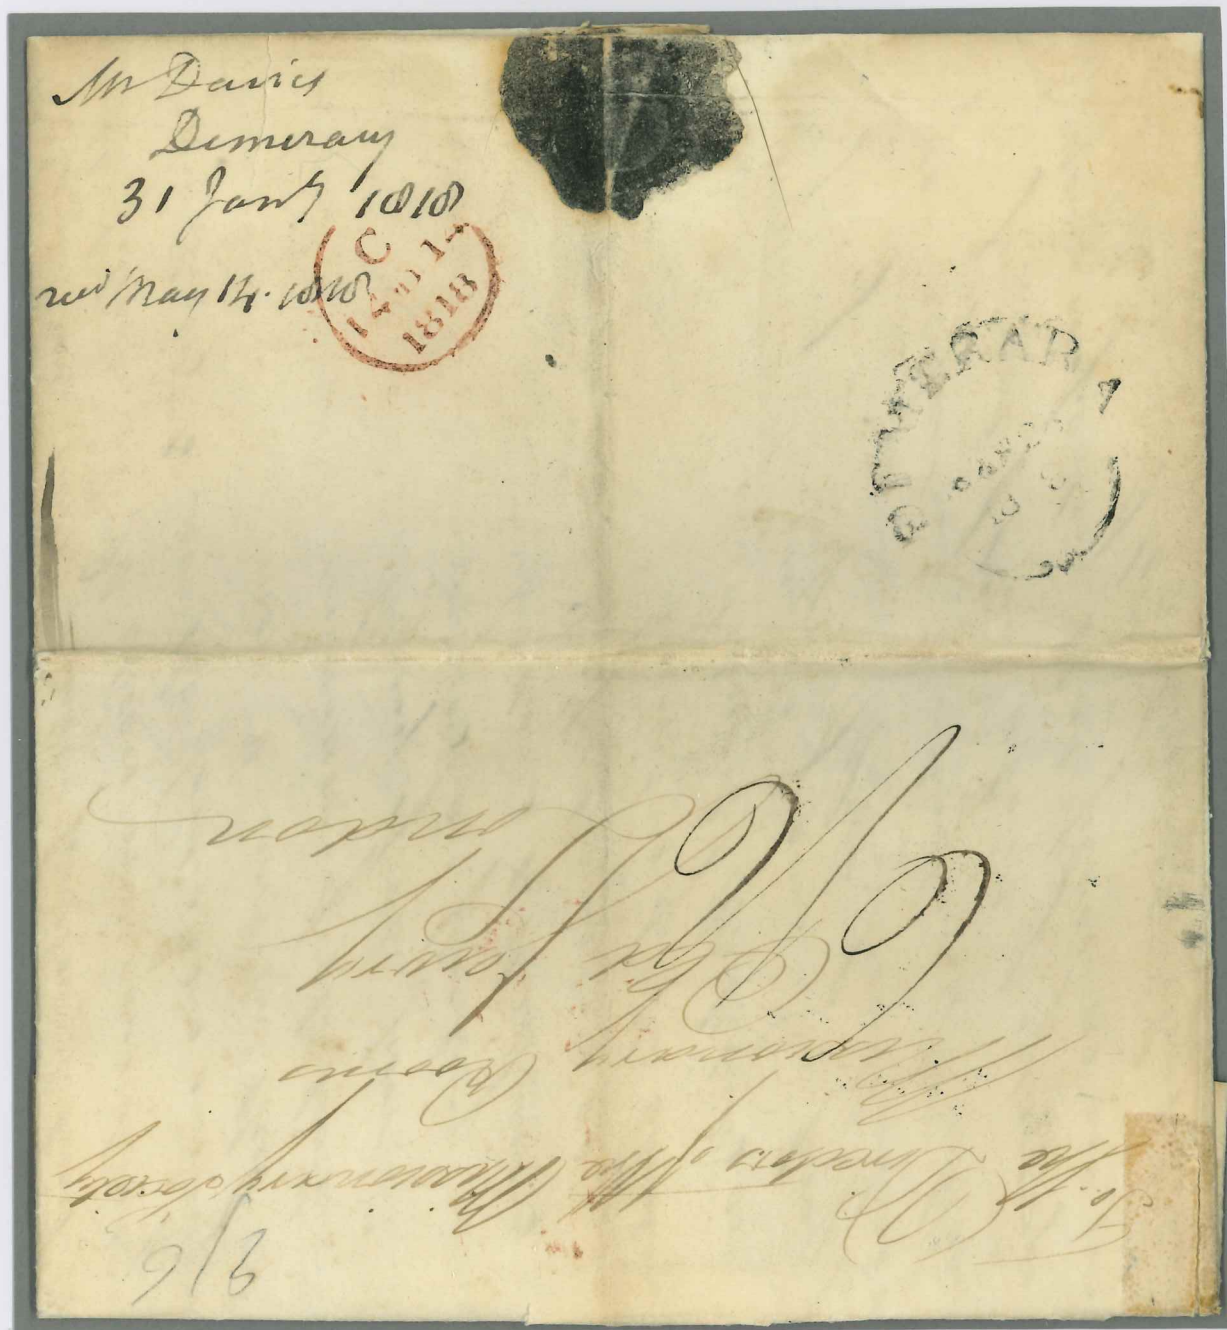 Mr Davies
Demerary
31 Jany 1818
recd May 14. 1818
C
14 MY 14
1818
DEMERARY
To the
Directors of the Missionary Society
Missionary Rooms
Old Jewry
London